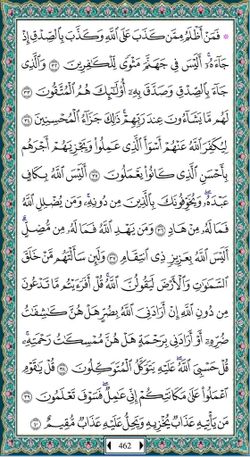 ۞ فَمَنْ أَظْلَمُ مِمَّن كَذَبَ عَلَى اللَّهِ وَكَذَّبَ بِالصِّدْقِ إِذْ
جَاءَهُۥٓ ۚ أَلَيْسَ فِي جَهَنَّمَ مَثْوًى لِّلْكَافِرِينَ ٣٢ وَالَّذِي
جَاءَ بِالصِّدْقِ وَصَدَّقَ بِهِۦٓ ۙ أُولَٰئِكَ هُمُ الْمُتَّقُونَ ٣٣
لَهُم مَّا يَشَاءُونَ عِندَ رَبِّهِمْ ۚ ذَٰلِكَ جَزَاءُ الْمُحْسِنِينَ ٣٤
لِيُكَفِّرَ اللَّهُ عَنْهُمْ أَسْوَأَ الَّذِي عَمِلُوا وَيَجْزِيَهُمْ أَجْرَهُم
بِأَحْسَنِ الَّذِي كَانُوا يَعْمَلُونَ ٣٥ أَلَيْسَ اللَّهُ بِكَافٍ
عَبْدَهُۥ ۖ وَيُخَوِّفُونَكَ بِالَّذِينَ مِن دُونِهِۦ ۚ وَمَن يُضْلِلِ اللَّهُ
فَمَا لَهُۥ مِنْ هَادٍ ٣٦ وَمَن يَهْدِ اللَّهُ فَمَا لَهُۥ مِن مُّضِلٍّ ۗ
أَلَيْسَ اللَّهُ بِعَزِيزٍ ذِي انتِقَامٍ ٣٧ وَلَئِن سَأَلْتَهُم مَّنْ خَلَقَ
السَّمَاوَاتِ وَالْأَرْضَ لَيَقُولُنَّ اللَّهُ ۚ قُلْ أَفَرَأَيْتُم مَّا تَدْعُونَ
مِن دُونِ اللَّهِ إِنْ أَرَادَنِيَ اللَّهُ بِضُرٍّ هَلْ هُنَّ كَاشِفَاتُ
ضُرِّهِۦٓ أَوْ أَرَادَنِي بِرَحْمَةٍ هَلْ هُنَّ مُمْسِكَاتُ رَحْمَتِهِۦ ۚ
قُلْ حَسْبِيَ اللَّهُ ۖ عَلَيْهِ يَتَوَكَّلُ الْمُتَوَكِّلُونَ ٣٨ قُلْ يَا قَوْمِ
اعْمَلُوا عَلَىٰ مَكَانَتِكُمْ إِنِّي عَامِلٌ ۖ فَسَوْفَ تَعْلَمُونَ ٣٩
مَن يَأْتِيهِ عَذَابٌ يُخْزِيهِ وَيَحِلُّ عَلَيْهِ عَذَابٌ مُّقِيمٌ ٤٠
462